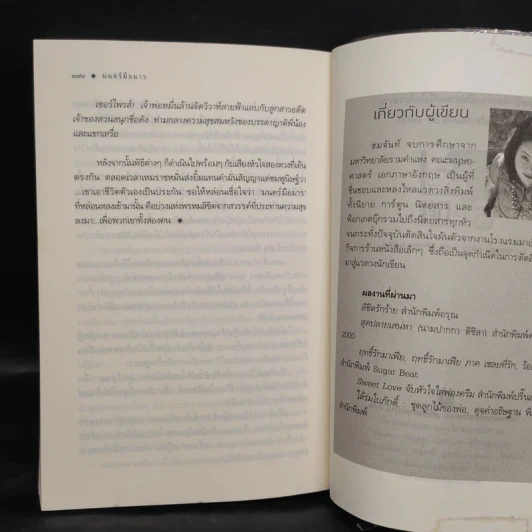 มนตร์มือมาร
เซอร์ไพรส์! เจ้าพ่อหมื่นล้านจัดวิวาห์สายฟ้าแลบกับลูกสาวอดีต
เจ้าของสวนสนุกชื่อดัง ท่ามกลางความสุขสมหวังของบรรดาญาติพี่น้อง
และแขกเหรื่อ
หลังจากนั้นพิธีต่างๆ ก็ดำเนินไปพร้อมๆ กับเสียงหัวใจสองดวงที่เต้น
ตรงกัน ตลอดช่วงเวลา
...เขาเอาชีวิตตัวเองเป็นประกัน ขอให้หล่อนเชื่อใจว่า 'มนตร์มือมาร'
ที่หล่อนหลงเข้ามานั้น คือบ่วงแห่งพรหมลิขิตจากสวรรค์ที่ประทานความสุข
ลงมา...เพื่อพวกเขาทั้งสองคน
เกี่ยวกับผู้เขียน
ชมจันท์ จบการศึกษาจาก
มหาวิทยาลัยรามคำแหง คณะมนุษย-
ศาสตร์ เอกภาษาอังกฤษ เป็นผู้ที่
ชื่นชอบและหลงใหลแวดวงสิ่งพิมพ์
ทั้งนิยาย การ์ตูน นิตยสาร และ
พ็อกเกตบุ๊กรวมไปถึงนิตยสารทุกหัว
จนกระทั่งปัจจุบันตัดสินใจผันตัวจากงานโรงแรมมา
กิจการร้านหนังสือเล็กๆ ซึ่งถือเป็นจุดกำเนิดในการ
มาสู่แวดวงนักเขียน
ผลงานที่ผ่านมา
ลิขิตรักร้าย สำนักพิมพ์อรุณ
สุดปลายเสน่หา (นามปากกา ตีซิลา) สำนักพิมพ์
2000
ฤทธิ์รักมาเฟีย, ฤทธิ์รักมาเฟีย ภาค เชลยที่รัก,
สำนักพิมพ์ Sugar Beat
Sweet Love จับหัวใจใส่ฟองครีม สำนักพิมพ์
ใต้ร่มใบภักดิ์ ชุดลูกไม้ของพ่อ, ดุจคำอธิษฐาน
สำนักพิมพ์